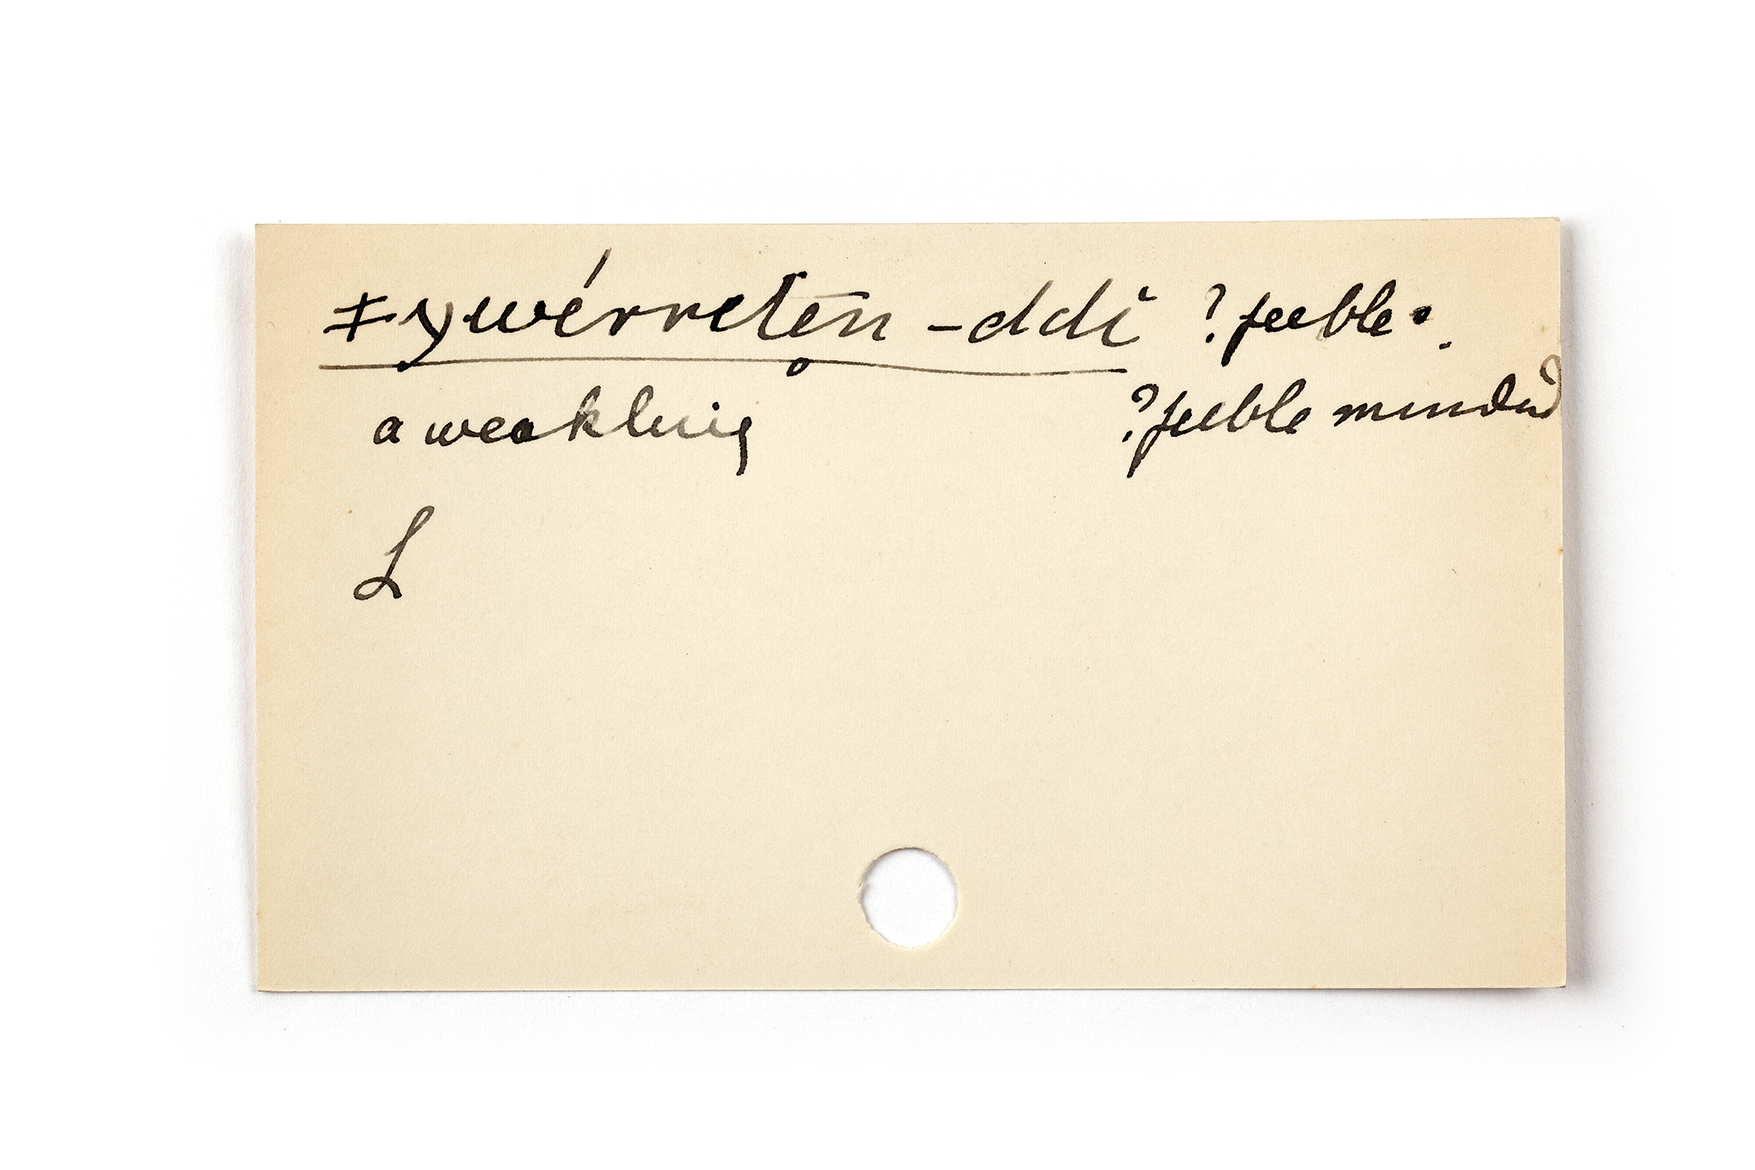 ǂẏwérretēn -ddi ? feeble.
a weakling ? feeble minded
L